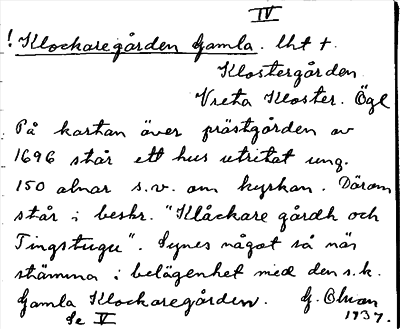 IV
! Klockaregården Gamla. lht +.
Klostergården.
Vreta Kloster. Ögl
På kartan över prästgården av
1696 står ett hus utritat ung.
150 alnar s.v. om kyrkan. Därom
står i beskr. "Klåckare gårdh och
Tingstugu". Synes något så när
stämma i belägenhet med den s.k.
Gamla Klockaregården. G.
Se V 1937.